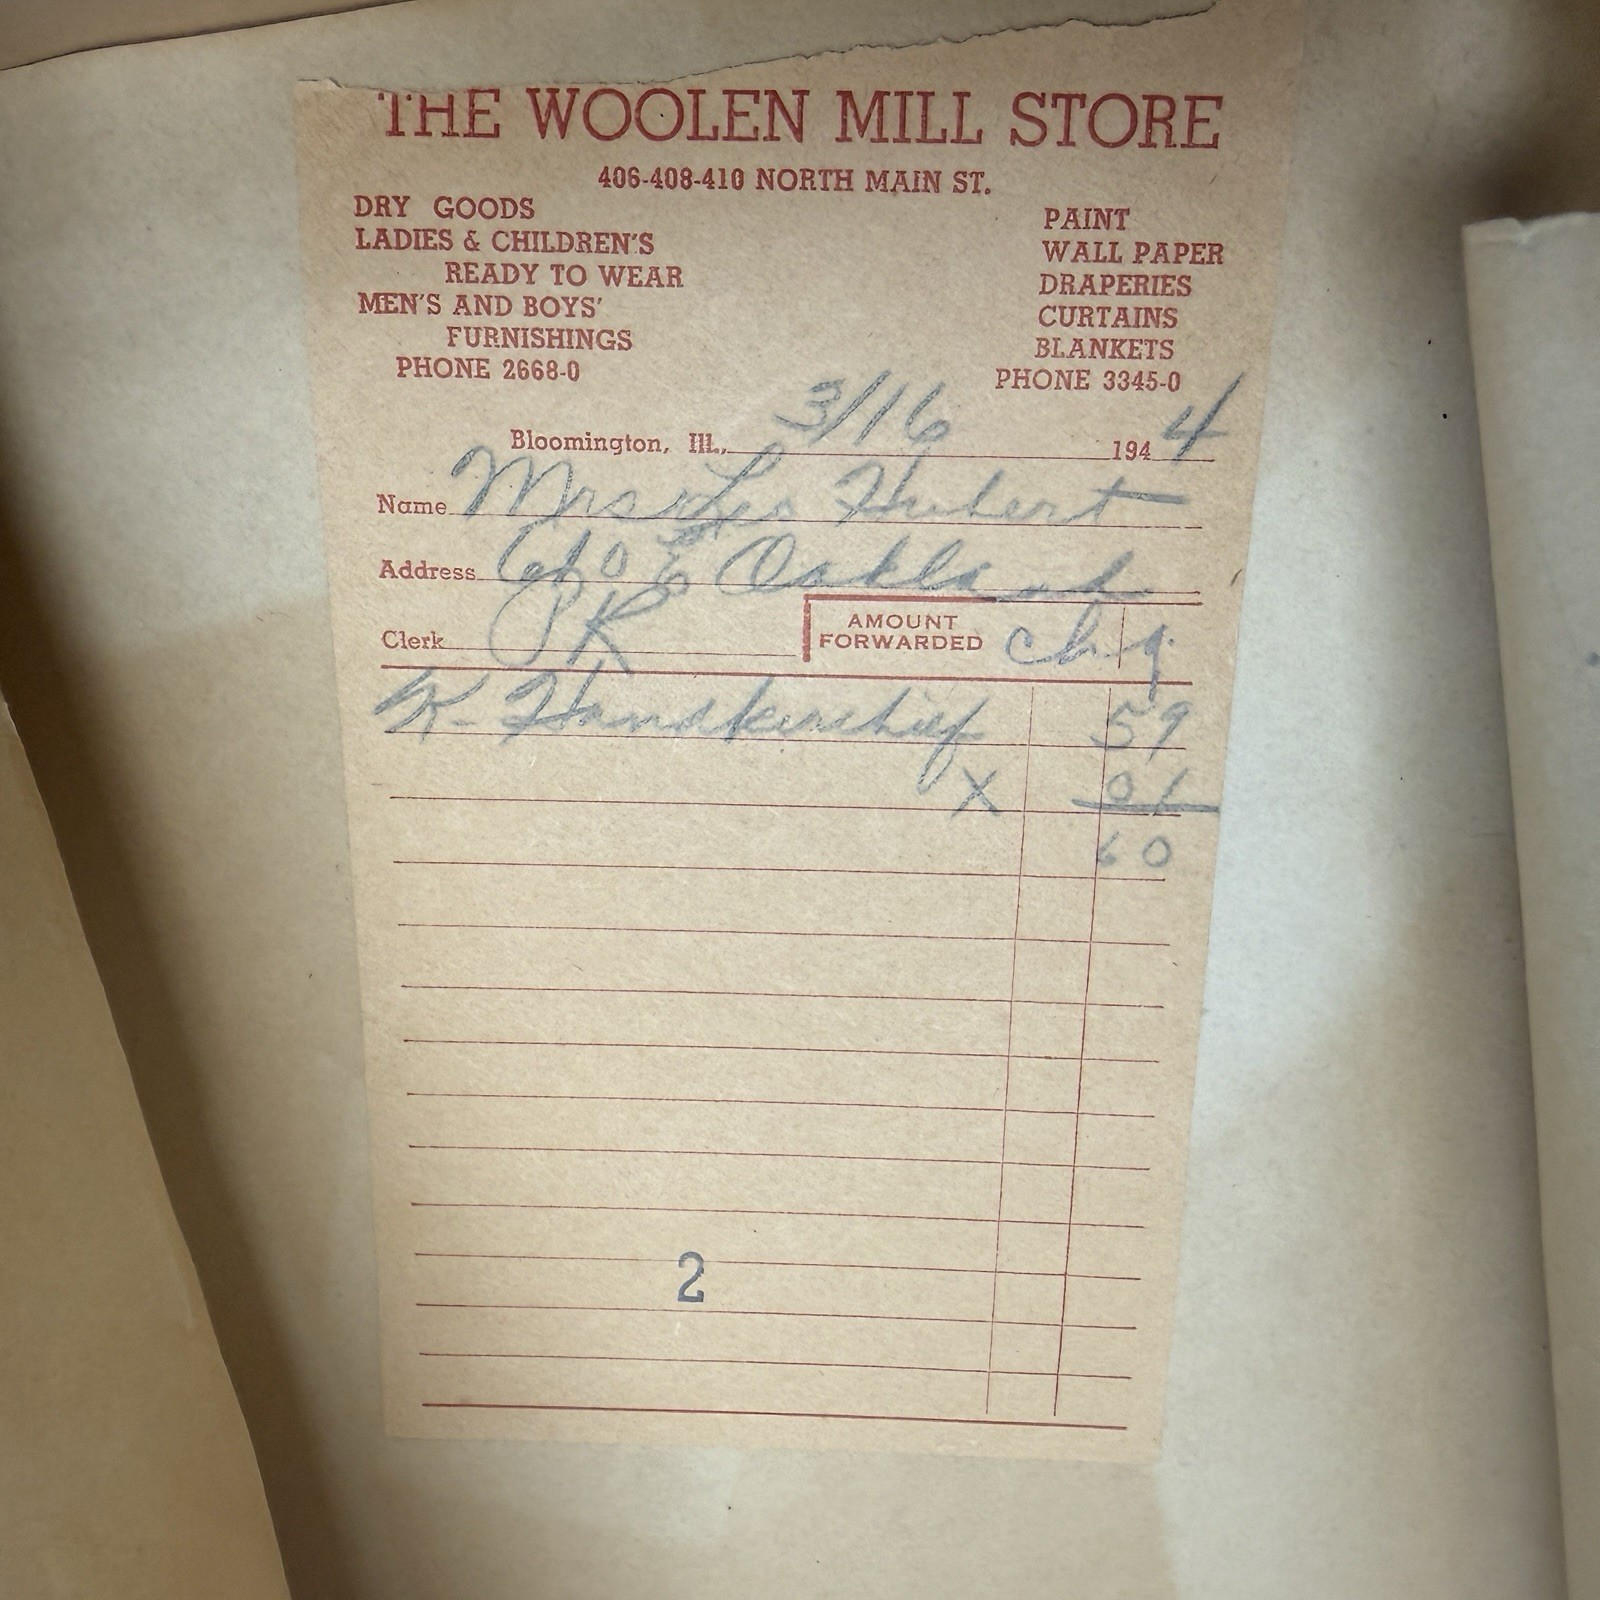 THE WOOLEN MILL STORE
406-408-410 NORTH MAIN ST.
DRY GOODS
LADIES & CHILDREN'S
READY TO WEAR
MEN'S AND BOYS'
FURNISHINGS
PHONE 2668-0
PAINT
WALL PAPER
DRAPERIES
CURTAINS
BLANKETS
PHONE 3345-0
Bloomington, Ill., 3/16 1944
Name Mrs Leo Hubert
Address E Oakland
Clerk AMOUNT FORWARDED chg.
Handkerchief 59
X 01
60
2